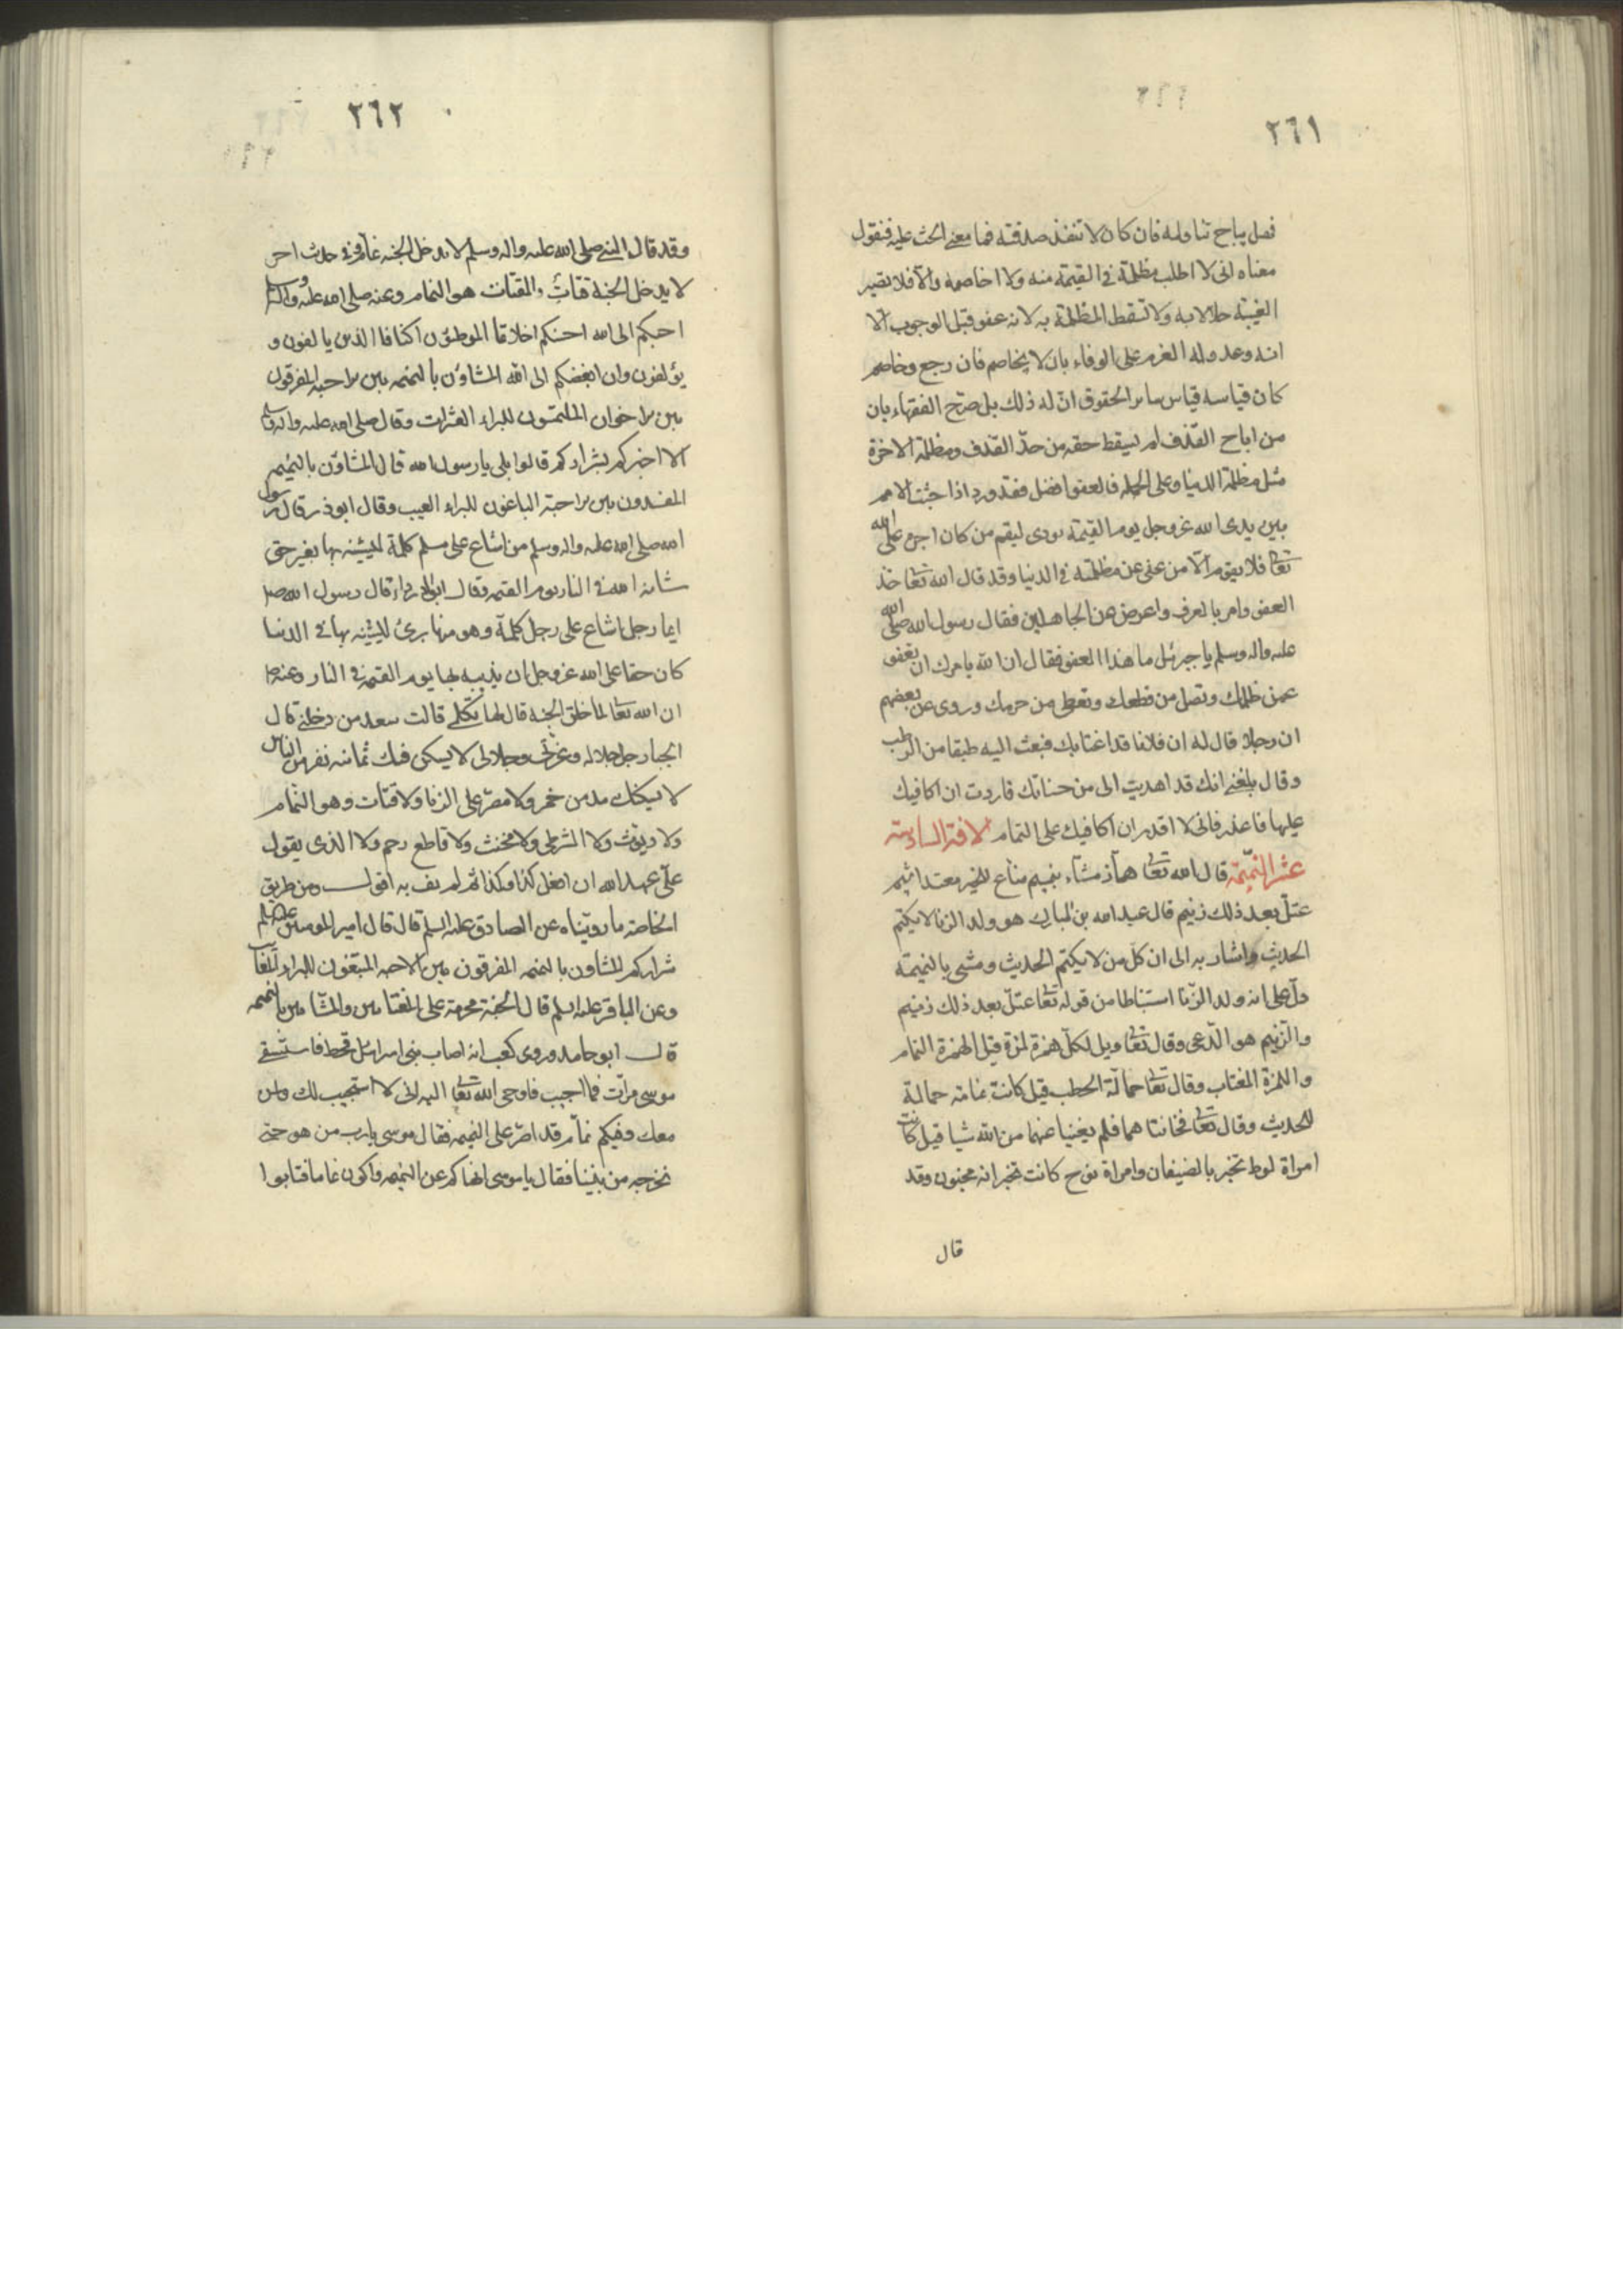 ٢٦١
فهل يباح تناوله فان كان لا تنفذ صدقته فما معنى الحث عليه فنقول
معناه انى لا اطلب مظلمة فى القيمة منه ولا اخاصمه والا فلا تصير
الغيبة حلالا به ولا تسقط المظلمة به لانه عفو قبل الوجوب الا
انه وعد وله العزم على الوفاء بان لا يخاصم فان رجع وخاصم
كان قياسه قياس ساير الحقوق ان له ذلك بل صرّح الفقهاء بان
من اباح القذف لم يسقط حقه من حدّ القذف ومظلمة الاخرة
مثل مظلمة الدنيا وعلى الجملة فالعفو افضل فقد ورد اذا جثت الامم
بين يدى الله عز وجل يوم القيمة نودى ليقم من كان اجره على الله
تعا فلا يقوم الّا من عفى عن مظلمته فى الدنيا وقد قال الله تعا خذ
العفو وامر بالعرف واعرض عن الجاهلين فقال رسول الله صلى الله
عليه واله وسلم يا جبرئيل ما هذا العفو فقال ان الله يامرك ان تعفو
عمن ظلمك وتصل من قطعك وتعطى من حرمك وروى عن بعضهم
ان رجلا قال له ان فلانا قد اغتابك فبعث اليه طبقا من الرطب
وقال بلغنى انك قد اهديت الى من حسناتك فاردت ان اكافيك
عليها فاعذرنى فانى لا اقدر ان اكافيك على التمام الافة السادسة
عشر النّميمة قال الله تعا همّاز مشّاء بنميم منّاع للخير معتد اثيم
عتلّ بعد ذلك زنيم قال عبد الله بن المبارك هو ولد الزنا لا يكتم
الحديث واشار به الى ان كلّ من لا يكتم الحديث ومشى بالنميمة
دلّ على انه ولد الزّنا استنباطا من قوله تعا عتلّ بعد ذلك زنيم
والزّنيم هو الدّعى وقال تعا ويل لكلّ همزة لمزة قيل الهمزة النمام
واللمزة المغتاب وقال تعا حمالة الحطب قيل كانت نمامة حمالة
للحديث وقال تعا فخانتاهما فلم يغنيا عنهما من الله شيا قيل كانت
امراة لوط تخبر بالضيفان وامراة نوح كانت تخبر انه مجنون وقد
قال
٢٦٢
وقد قال النبى صلى الله عليه واله وسلم لا يدخل الجنة نمام وفى حديث اخر
لا يدخل الجنة قتاتٌ والقتات هو النمام وعنه صلى الله عليه واله وسلم
احبكم الى الله احسنكم اخلاقا الموطئون اكنافا الذين يالفون و
يؤلفون وان ابغضكم الى الله المشاؤن بالنميمه بين الاحبه المفرقون
بين الاخوان الملتمسون للبراء العثرات وقال صلى الله عليه واله وسلم
الا اخبركم بشراركم قالوا بلى يا رسول الله قال المشاؤن بالنميمه
المفسدون بين الاحبة الباغون للبراء العيب وقال ابو ذر قال رسول
الله صلى الله عليه واله وسلم من اشاع على مسلم كلمة ليشينه بها بغير حق
شانه الله فى النار يوم القيمه وقال ابو الدرداء قال رسول الله صلى
ايما رجل اشاع على رجل كلمة وهو منها برئ ليشينه بها فى الدنيا
كان حقا على الله عز وجل ان يذيبه بها يوم القيمة فى النار وعنه ص
ان الله تعا لما خلق الجنة قال لها تكلمى قالت سعد من دخلنى قال
الجبار جل جلاله وعزتى وجلالى لا يسكن فيك ثمانيه نفر من الناس
لا يسكنك مدمن خمر ولا مصرّ على الزنا ولا قتات وهو النّمام
ولا ديوث ولا الشرطى ولا مخنث ولا قاطع رحم ولا الذى يقول
علّى عهد الله ان افعل كذا وكذا ثم لم يف به اقول ومن طريق
الخاصة ما رويناه عن الصادق عليه السلم قال قال امير المومنين عليه السلم
شراركم المشاؤن بالنميمه المفرقون بين الاحبه المبتغون للبراء المعايب
وعن الباقر عليه السلم قال الجنة محرمة على المغتابين والمشّائين بالنميمه
قال ابو حامد وروى كعب انه اصاب بنى اسرائيل قحط فاستسقى
موسى مرّات فما اجيب فاوحى الله تعا اليه انى لا استجيب لك ولمن
معك وفيكم نمّام قد اصرّ على النميمه فقال موسى يا رب من هو حتى
نخرجه من بيننا فقال يا موسى انهاكم عن النميمه واكون نماما فتابوا